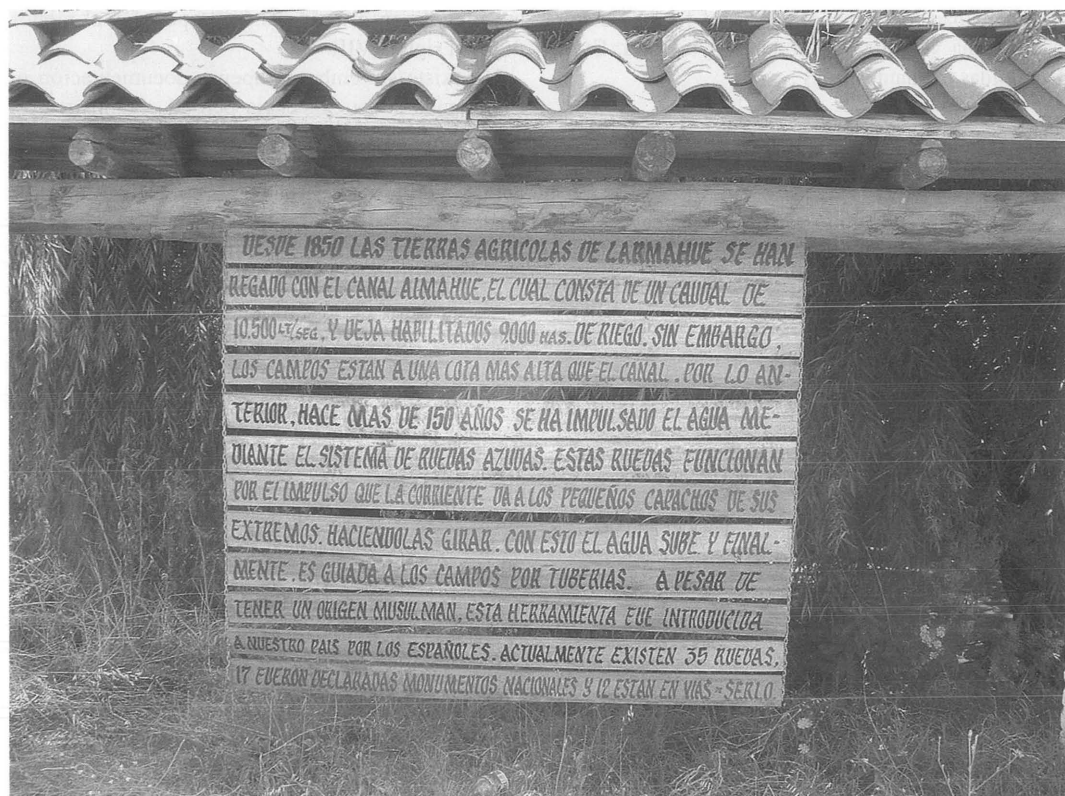 DESDE 1850 LAS TIERRAS AGRICOLAS DE LARMAHUE SE HAN
REGADO CON EL CANAL ALMAHUE, EL CUAL CONSTA DE UN CAUDAL DE
10.500 LT/SEG, Y DEJA HABILITADOS 9.000 HAS. DE RIEGO. SIN EMBARGO,
LOS CAMPOS ESTAN A UNA COTA MAS ALTA QUE EL CANAL. POR LO AN-
TERIOR, HACE MAS DE 150 AÑOS SE HA IMPULSADO EL AGUA ME-
DIANTE EL SISTEMA DE RUEDAS AZUDAS. ESTAS RUEDAS FUNCIONAN
POR EL IMPULSO QUE LA CORRIENTE DA A LOS PEQUEÑOS CAPACHOS DE SUS
EXTREMOS. HACIENDOLAS GIRAR. CON ESTO EL AGUA SUBE Y FINAL-
MENTE. ES GUIADA A LOS CAMPOS POR TUBERIAS. A PESAR DE
TENER UN ORIGEN MUSULMAN, ESTA HERRAMIENTA FUE INTRODUCIDA
A NUESTRO PAIS POR LOS ESPAÑOLES. ACTUALMENTE EXISTEN 35 RUEDAS,
17 FUERON DECLARADAS MONUMENTOS NACIONALES Y 12 ESTAN EN VIAS = SERLO.